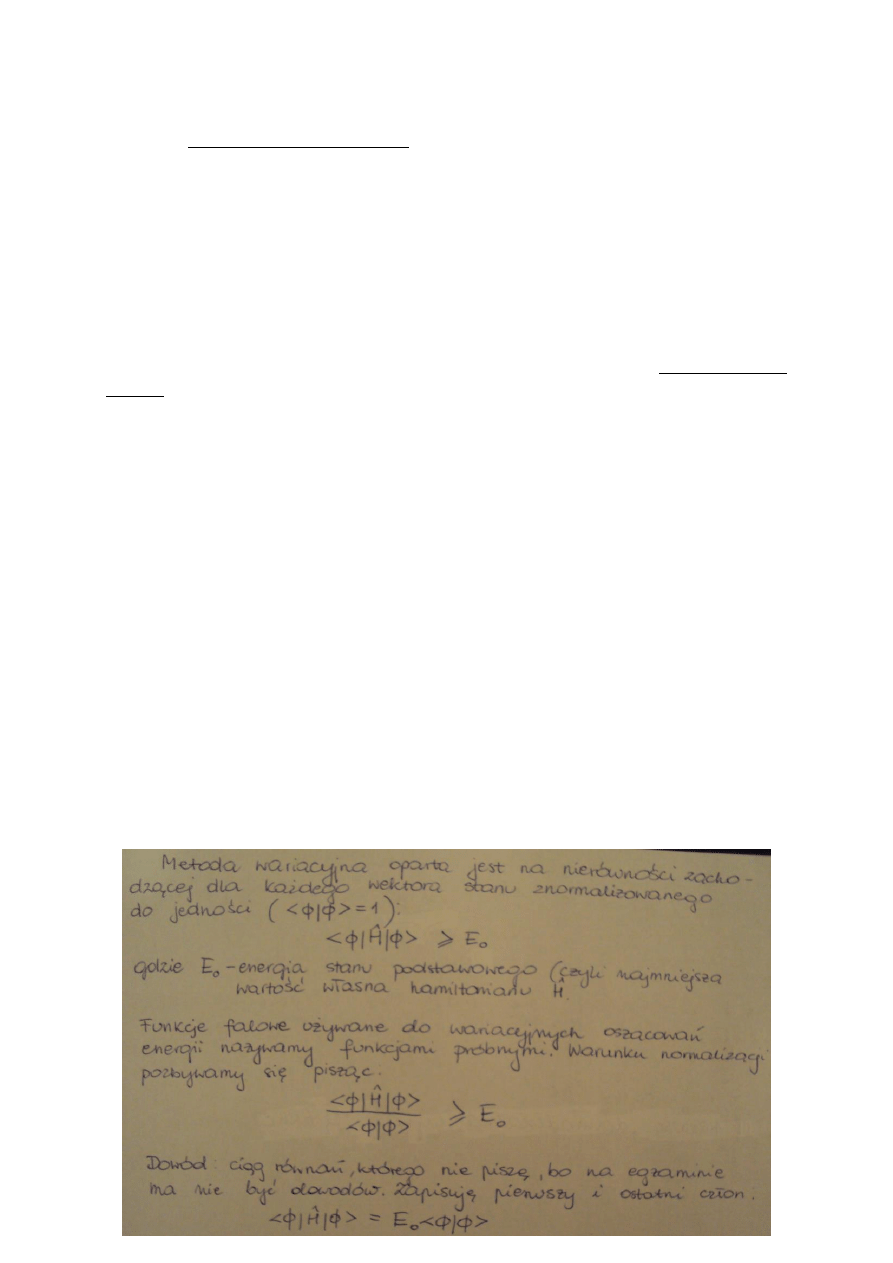 Metoda wariacyjna oparta jest na nierówności zacho-
dzącej dla każdego wektora stanu znormalizowanego
do jedności ( <φ|φ> = 1 ):
<φ|Ĥ|φ> ⩾ E₀
gdzie E₀ - energia stanu podstawowego (czyli najmniejsza
wartość własna hamiltonianu Ĥ.
Funkcje falowe używane do wariacyjnych oszacowań
energii nazywamy funkcjami próbnymi. Warunku normalizacji
pozbywamy się pisząc:
<φ|Ĥ|φ> / <φ|φ> ⩾ E₀
Dowód: ciąg równań, którego nie piszę, bo na egzaminie
ma nie być dowodów. Zapisuję pierwszy i ostatni człon:
<φ|Ĥ|φ> = E₀<φ|φ>